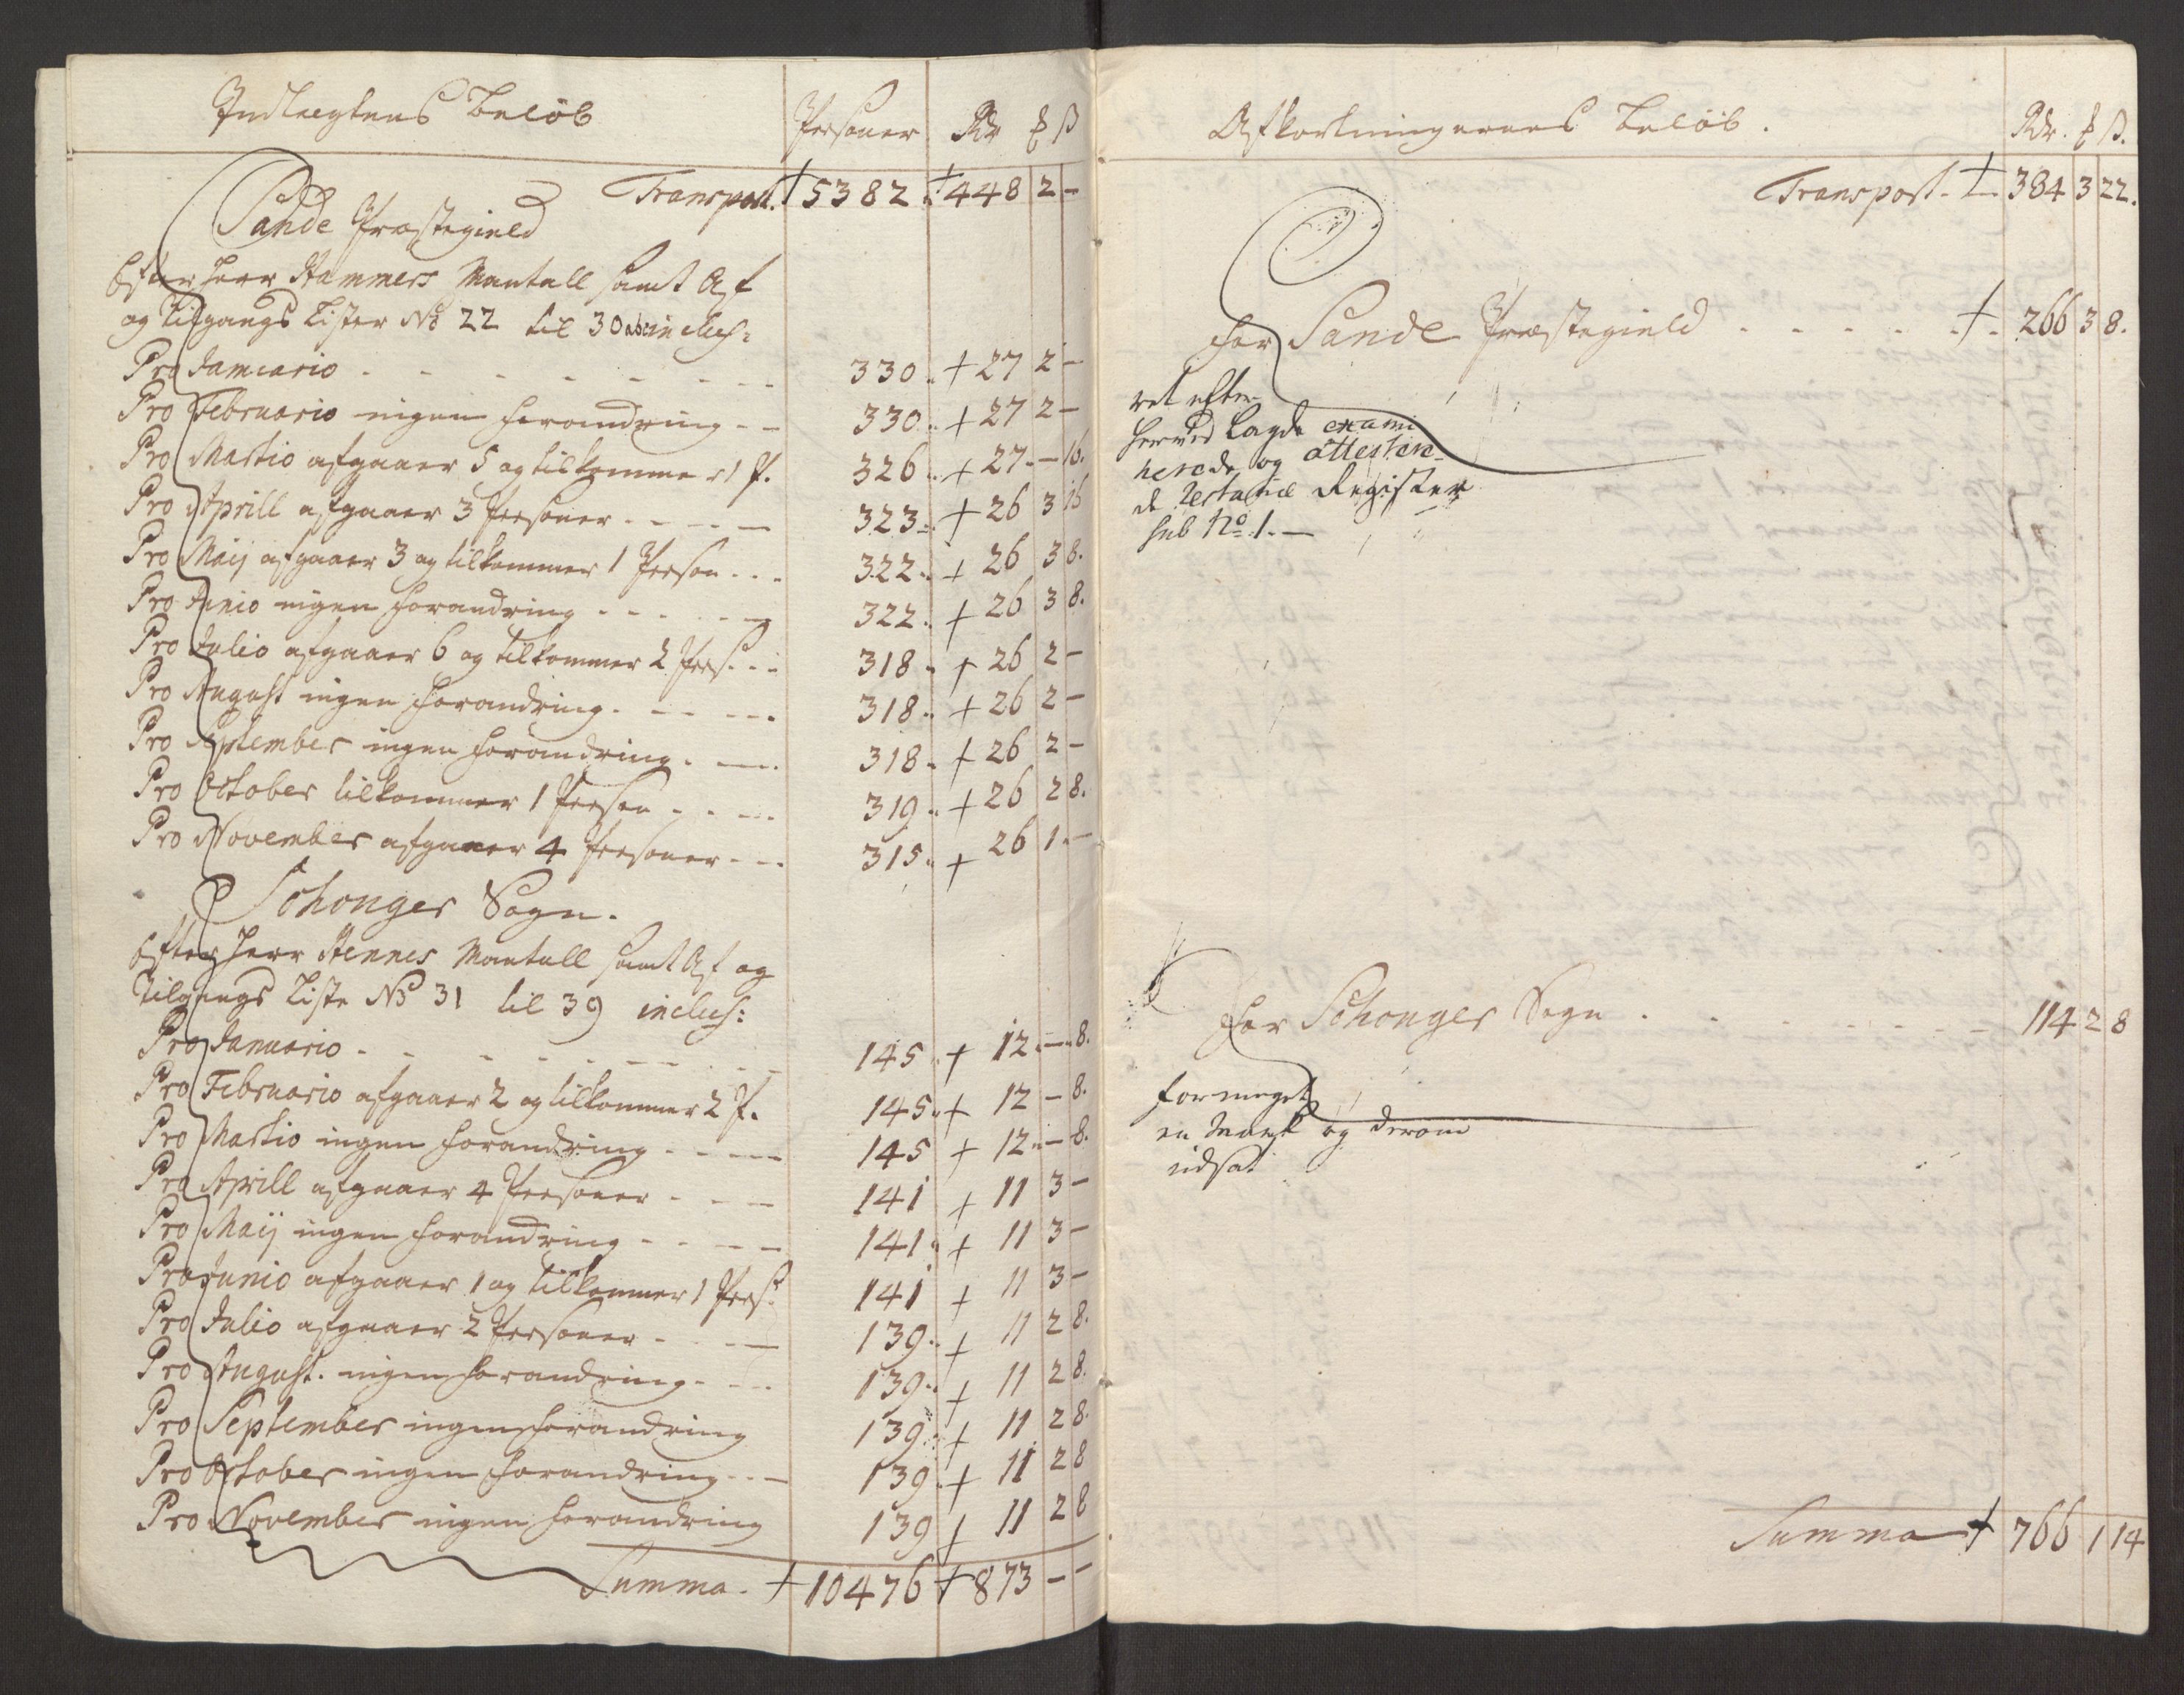 Indtægtens Beløb Personer Rdr ƺ β
Transport. † 5382 † 448 2 -
Sande Præstegield
Efter Herr Hammers Mantall samt Af
og Tilgangs Lister No 22 til 30 inclus:
Pro Januario - - - 330. + 27 2 -
Pro Februario ingen forandring - - 330. + 27 2 -
Pro Martio afgaaer 5 og tilkommer 1 P. 326. + 27 - 16.
Pro Aprill afgaaer 3 Personer - - - 323. + 26 3 16
Pro Maij afgaaer 3 og tilkommer 1 Person - - - 322. + 26 3 8.
Pro Junio ingen forandring - - - 322. + 26 3 8.
Pro Julio afgaaer 6 og tilkommer 2 Pers. - - 318. + 26 2 -
Pro August ingen forandring - - - 318. + 26 2 -
Pro September ingen forandring - - 318. + 26 2 -
Pro October tilkommer 1 Person - - - 319. + 26 2 8.
Pro November afgaaer 4 Personer - - - 315. + 26 1 -
Schonger Sogn.
Efter Herr Stennes Mantall samt Af og
Tilgangs Liste No 31 til 39 inclus:
Pro Januario - - - 145. + 12 - 8.
Pro Februario afgaaer 2 og tilkommer 2 P. 145. + 12 - 8.
Pro Martio ingen forandring - - - 145 + 12 - 8.
Pro Aprill afgaaer 4 Personer - - - 141 + 11 3 -
Pro Maij ingen forandring - - - 141. + 11 3 -
Pro Junio afgaaer 1 og tilkommer 1 Pers: 141 + 11 3 -
Pro Julio afgaaer 2 Personer - - - 139. + 11 2 8.
Pro August. ingen forandring - - - 139. + 11 2 8.
Pro September ingen forandring 139. + 11 2 8.
Pro October ingen forandring - - - 139. + 11 2 8
Pro November ingen forandring 139 + 11 2 8
Summa. † 10476 † 873 - -
Afkortningernes Beløb. Rdr. ƺ β.
Transport - † 384 3 22.
For Sande Præstegield - - - † - 266 3 8.
ret efter
herved lagde exami
nerede og attestere
de Restance Register
sub No 1. -
For Schonger Sogn - - - 114 2 8
for meget
en Mark og derom
udsat
Summa † 766 1 14